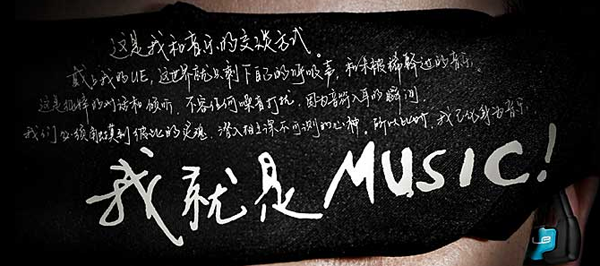 这是我和音乐的交谈方式。
戴上我的UE,这世界就只剩下自己的呼吸声,和未被稀释过的音乐。
这是纯粹的对话和倾听,不容任何噪音打扰,因为音符入耳的瞬间,
我们必须触摸到彼此的灵魂,潜入相互深不可测的心神。所以此时,我已化身为音乐。
我就是MUSIC!
UE